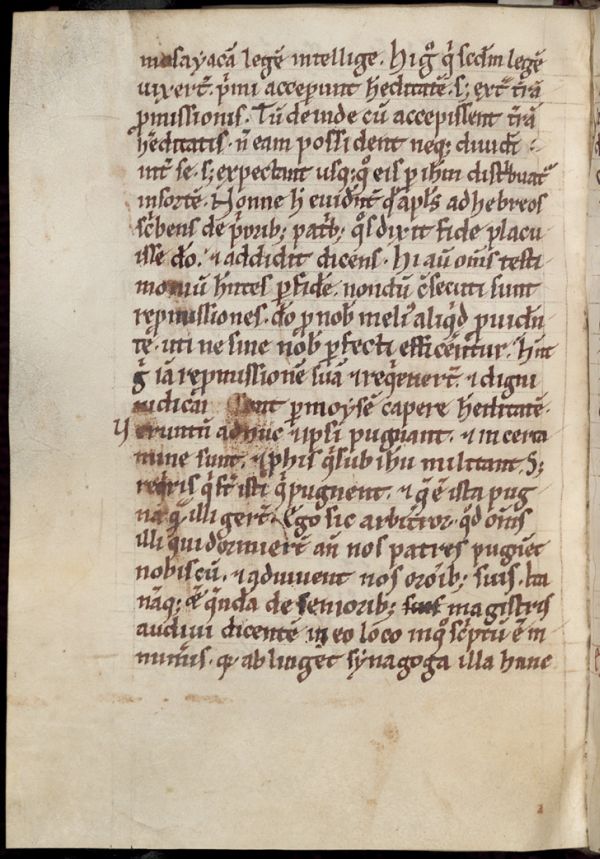 mosaycā legē intellige. Hi gͦ qͥ scdm legē
uixerͭ. pͥmi acceperunt hͤeditatē. s; ext͛ t͛rā
ꝓmissionis. Tū deinde cū accepissent t͛rā
hͤeditatis. n̄ eam possident neq; diuidt͛
int͛ se. s; expectant usq;quo eis ꝑ ihm distͥbuatͬ
in sorte. Nonne h̄ euidēnt͛ apls ad hebreos
sc͛bens de pͥorib; patͥb; qͦs dixit fide placu
isse dō. ⁊ addidit dicens. Hi au᷒ om̄s testi
moniū hn̄tes ꝑ fidē. nondū c̄secuti sunt
repmissiones. dō ꝓ nob meliꝰ aliqͥd ꝓuidn̄
te. uti ne sine nob ꝑfecti efficerentur. Hn̄t
gͦ iā repmissionē suā ⁊ reqͥeuerͭ. ⁊ digni
iudicati sunt ꝑ moysē capere hͤeditatē.
Verumtū adhuc ⁊ ipsi pugnant. ⁊ in certa
mine sunt. ꝓ his qͥ sub ihu militant. S;
reqͥris qͦm̄ isti pugnent. ⁊ q̄ ē ista pug
na qͣ illi gerͭ. Ego sic arbitror. qd om̄s
illi qui dormierͭ an̄ nos patres pugnēt
nobiscū. ⁊ adiuuent nos orōib; suis. Ita
nāq; ⁊ qͥnda de seniorib; magistris
audiui dicentē in eo loco in qͦ scͥptū ē in
num̄is. qͥa ablinget synagoga illa hanc